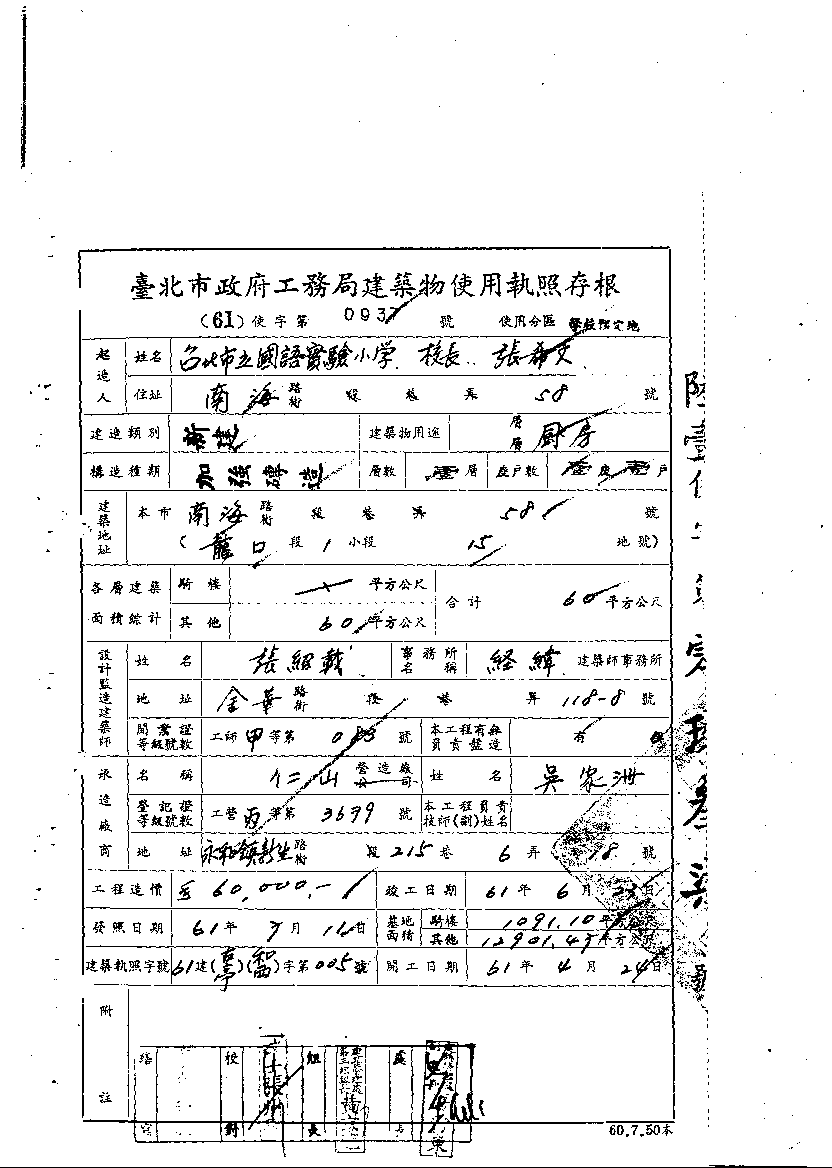 臺北市政府工務局建築物使用執照存根
(61)使字第 0937 號 使用分區 學校預定地
起造人 姓名 台北市立國語實驗小学 校長 張希文
住址 南海 路街 段 巷 弄 58 號
建造類別 新建 建築物用途 層層 厨房
構造種類 加強磚造 層數 壹層 座戶數 壹座壹戶
建築地址 本市 南海 路街 段 巷 弄 58 號
(龍口 段 1 小段 15 地號)
各層建築面積綜計 騎樓 平方公尺 合計 60 平方公尺
其他 60 平方公尺
設計監造建築師 姓名 張紹載 事務所名稱 経緯 建築師事務所
地址 金華 路街 段 巷 弄 118-8 號
開業證等級號數 工師 甲 等第 083 號 本工程有無負責監造 有
承造廠商 名稱 仁山 營造廠公司 姓名 吳家洲
登記證等級號數 工營 丙 等第 3679 號 本工程負責技師(副)姓名
地址 永和鎮新生 路街 段 215 巷 6 弄 18 號
工程造價 60,000.- 竣工日期 61年 6月 日
發照日期 61年 7月 日 基地面積 騎樓 1091.10
其他 12901.47 平方公尺
建築執照字號 61建( )( )字第005號 開工日期 61年 4月 24日
附註
校對 組長
60.7.50本